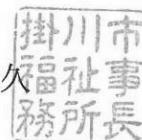 久
掛川市
福祉事
務所長